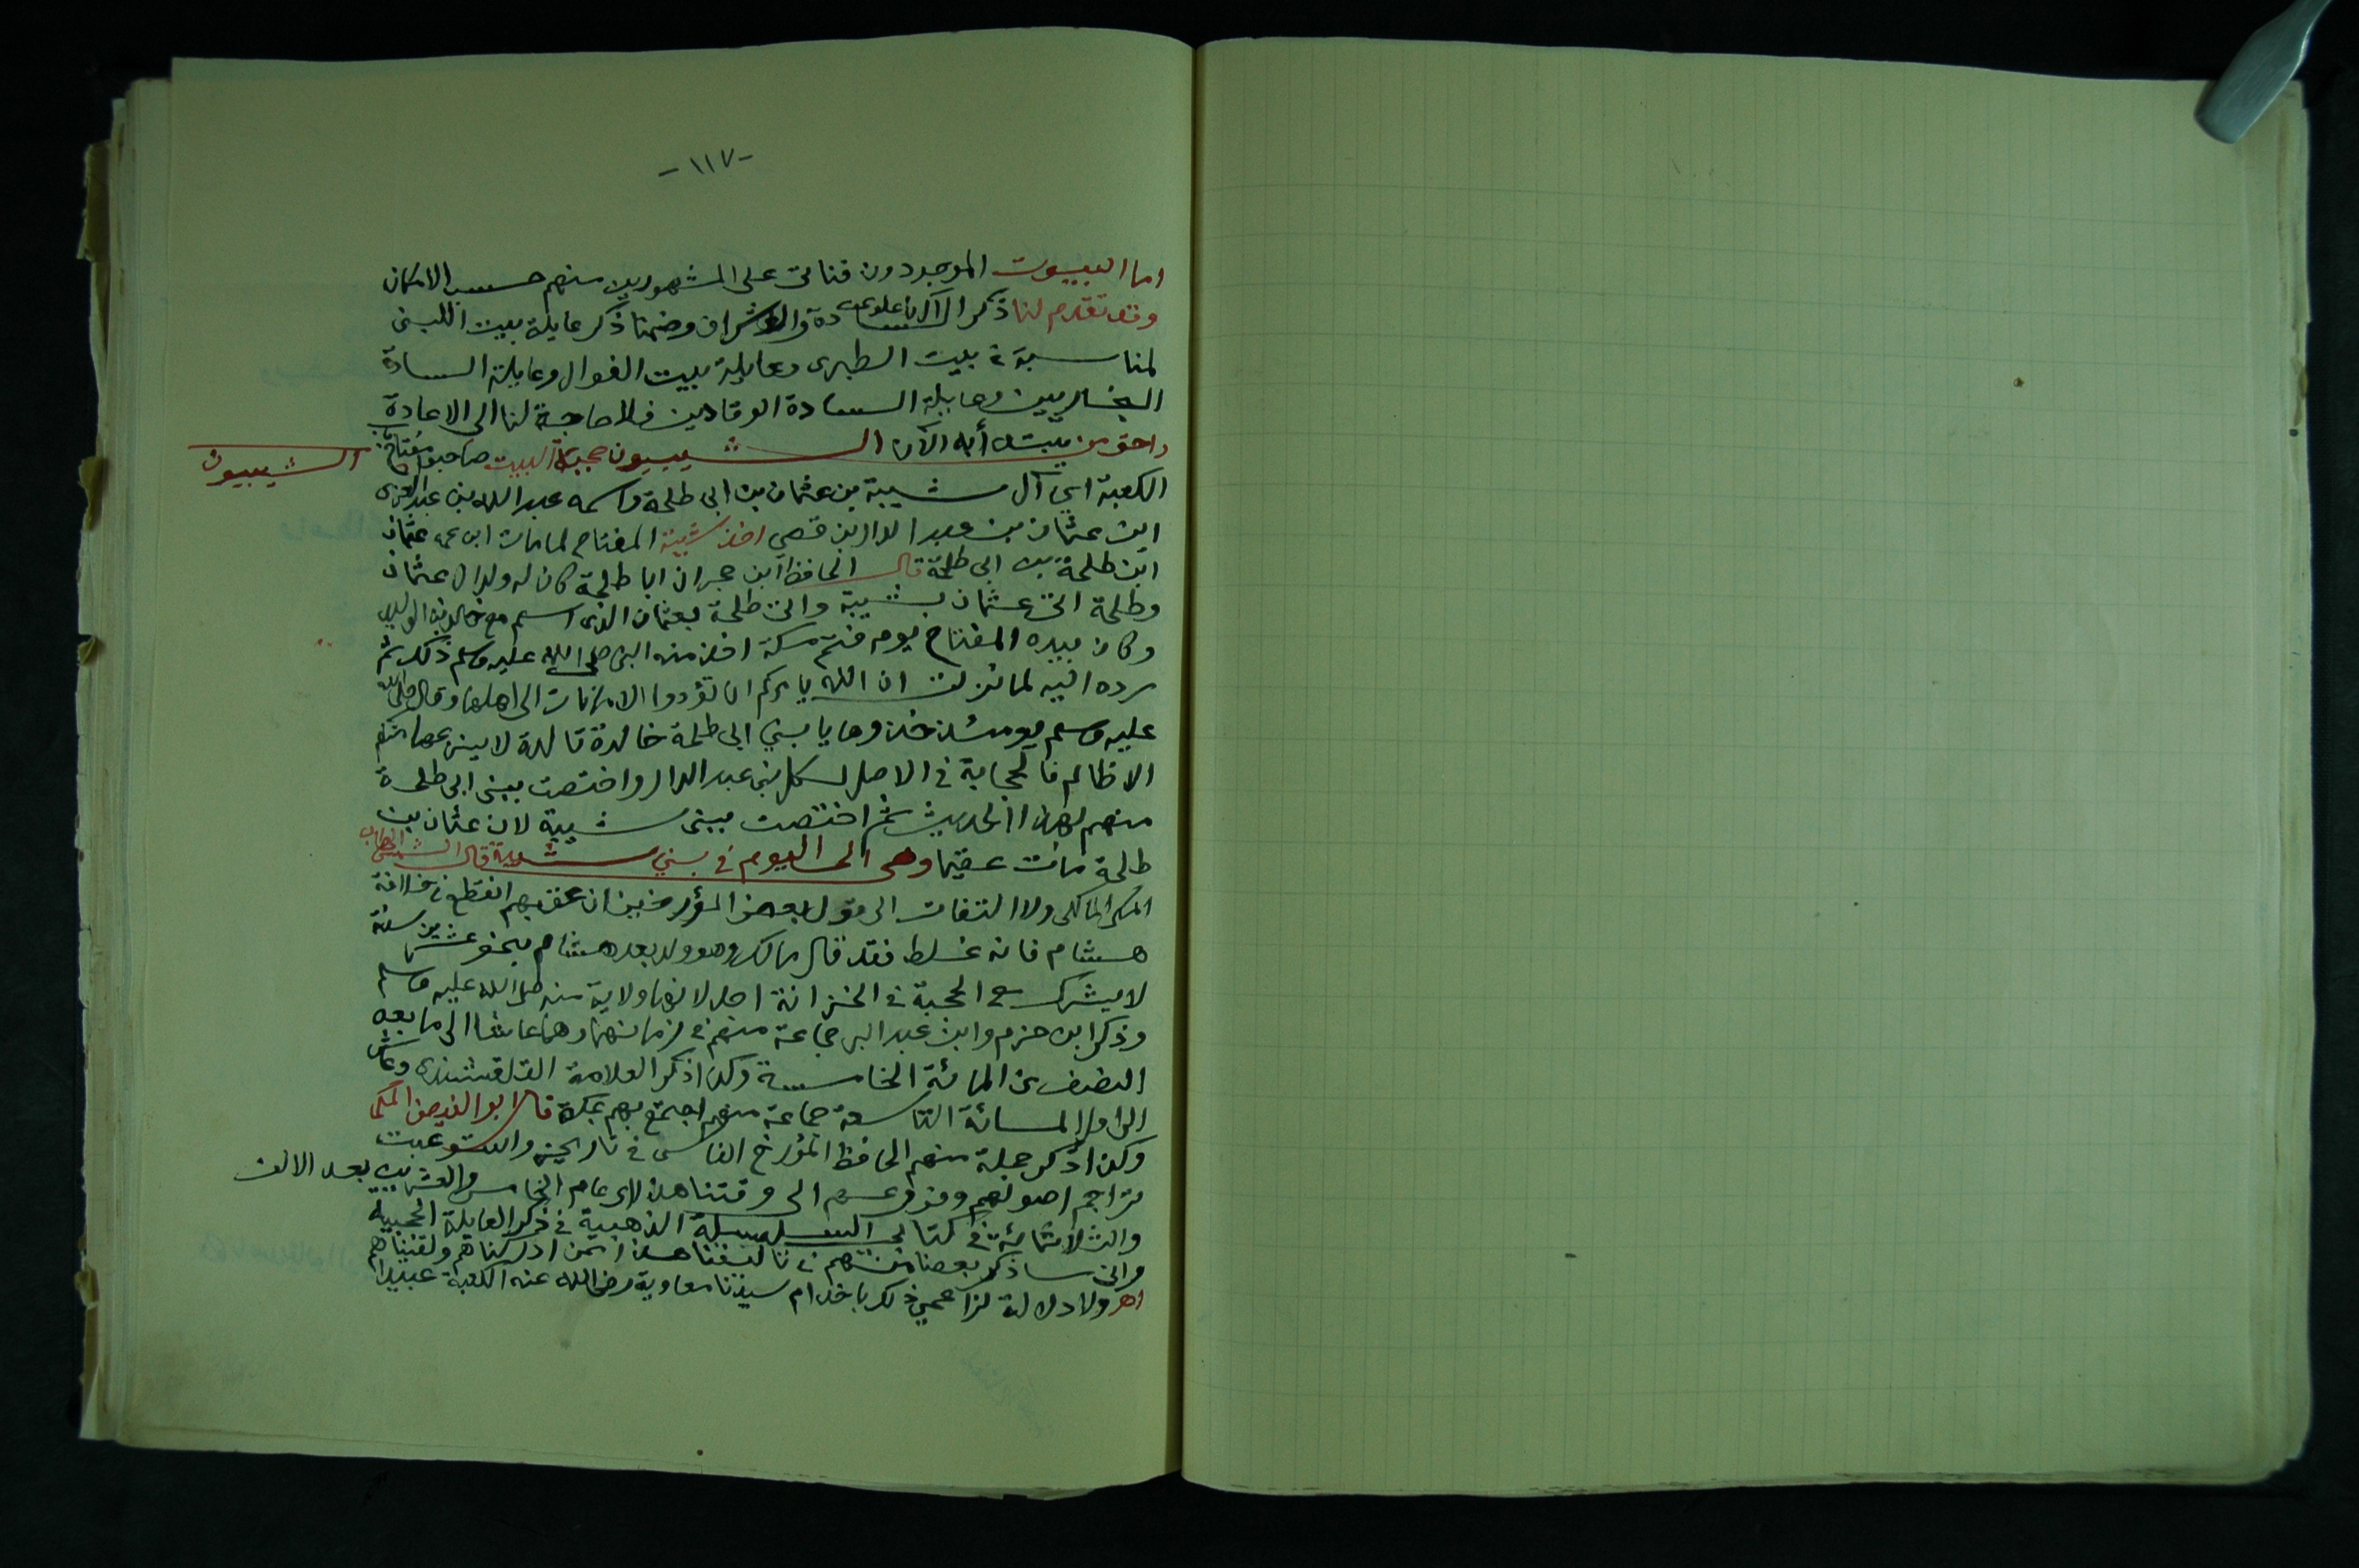 -١١٧-
اما البيوت الموجودون فناتى على المشهورين منهم حسب الامكان
وقد تقدم لنا ذكر آل باعلوى السادة والاشراف وضمنا ذكر عايلة بيت اللبنى
لمناسبة بيت الطبرى وعايلة بيت الفوال وعايلة السادة
وعايلة السادة الوقادين فلا حاجة لنا الى الاعادة
واحق من يبتدأ به الآن الشيبيون حجبة البيت صاحبوا مفتاح باب
الشيبيون
الكعبة اى آل شيبة بن عثمان بن ابى طلحة واسمه عبد الله بن عبد العزى
ابن عثمان بن عبد الدار بن قصى اخذ شيبة المفتاح لما مات ابن عمه عثمان
ابن طلحة بن ابى طلحة قال الحافظ ابن حجر ان ابا طلحة كان له ولدان عثمان
وطلحة اتى عثمان بشيبة واتى طلحة بعثمان الذى اسلم مع خالد بن الوليد
وكان بيده المفتاح يوم فتح مكة اخذ منه النبى صلى الله عليه وسلم ذلك ثم
رده اليه لما نزلت ان الله يامركم ان تؤدوا الامانات الى اهلها وقال صلى الله
عليه وسلم يومئذ خذوها يا بني ابى طلحة خالدة تالدة لا ينزعها منكم
الا ظالم فالحجابة فى الاصل لكل بنى عبد الدار واختصت ببنى ابى طلحة
منهم لهذا الحديث ثم اختصت ببنى شيبة لان عثمان بن
طلحة مات عقيما وهى الى اليوم فى بني شيبة قال الشمس الحطاب
المكى المالكى ولا التفات الى قول بعض المؤرخين ان عقبهم انقطع فى خلافة
هشام فانه غلط فقد قال مالك وهو ولد بعد هشام بنحو عشرين سنة
لا يشرك مع الحجبة فى الخزانة احد لانها ولاية منه صلى الله عليه وسلم
وذكر ابن حزم وابن عبد البر جماعة منهم فى زمانهما وهما عاشا الى ما بعد
النصف من المائة الخامسة وكذا ذكر العلامة القلقشندى وعاش
الى اول المائة التاسعة جماعة منهم اجتمع بهم بمكة قال ابو الفيض المكى
وكذا ذكر جملة منهم الحافظ المؤرخ الفاسى فى تاريخيه واستوعبت
تراجم اصولهم وفروعهم الى وقتنا هذا لاى عام الخامس والعشرين بعد الالف
والثلاثمائة فى كتابى السلسلة الذهبية فى ذكر العايلة الحجبية
وانى ساذكر بعضا منهم فى تاليفنا هذا ممن ادركناهم ولقيناهم
اهـ ولا دلالة لزاعمي ذلك باخدام سيدنا معاوية رضى الله عنه الكعبة عبيدا